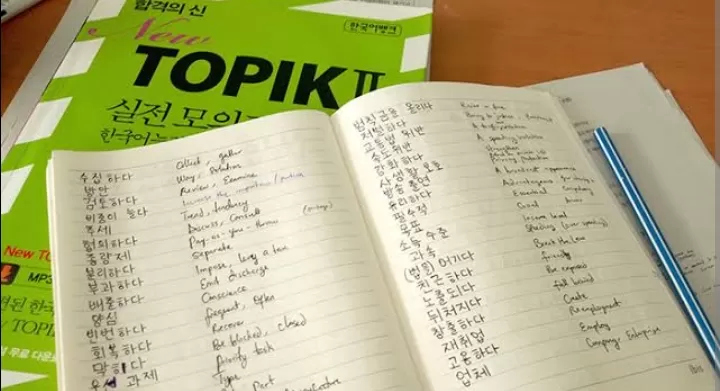 합격의 신
한국어뱅크
New
TOPIK II
실전 모의
한국어
New TO
MP3
TOPIK
무료 다운
수집하다 Collect, gather
방안 Way, Solution
검토하다 Review, Examine
비중이 늘다 Increase the importance
추세 Trend, tendency
협의하다 Discuss, Consult
종량제 Pay-as-you-throw
분리하다 Separate
부과하다 Impose, levy a tax
배출하다 Emit discharge
양심 Conscience
빈번하다 frequent, often
회복하다 Recover
막히다 Be blocked, closed
과제 Priority task
Type
범칙금을 올리다 Raise a fine
처벌하다
교통법 위반
속도위반 A speeding violation
강화하다 Strengthen
사생활 보호 privacy protection
방송 출연 A broadcast appearance
유리하다 Advantageous
필수적 Essential
목표 Goal
소득 수준 Income level
과속 Speeding
(법을) 어기다 Break the law
친근하다 friendly
노출되다 Be exposed
뒤처지다 fall behind
창출하다 Create
재취업 Reemployment
고용하다 Employ
업체 Company Enterprise